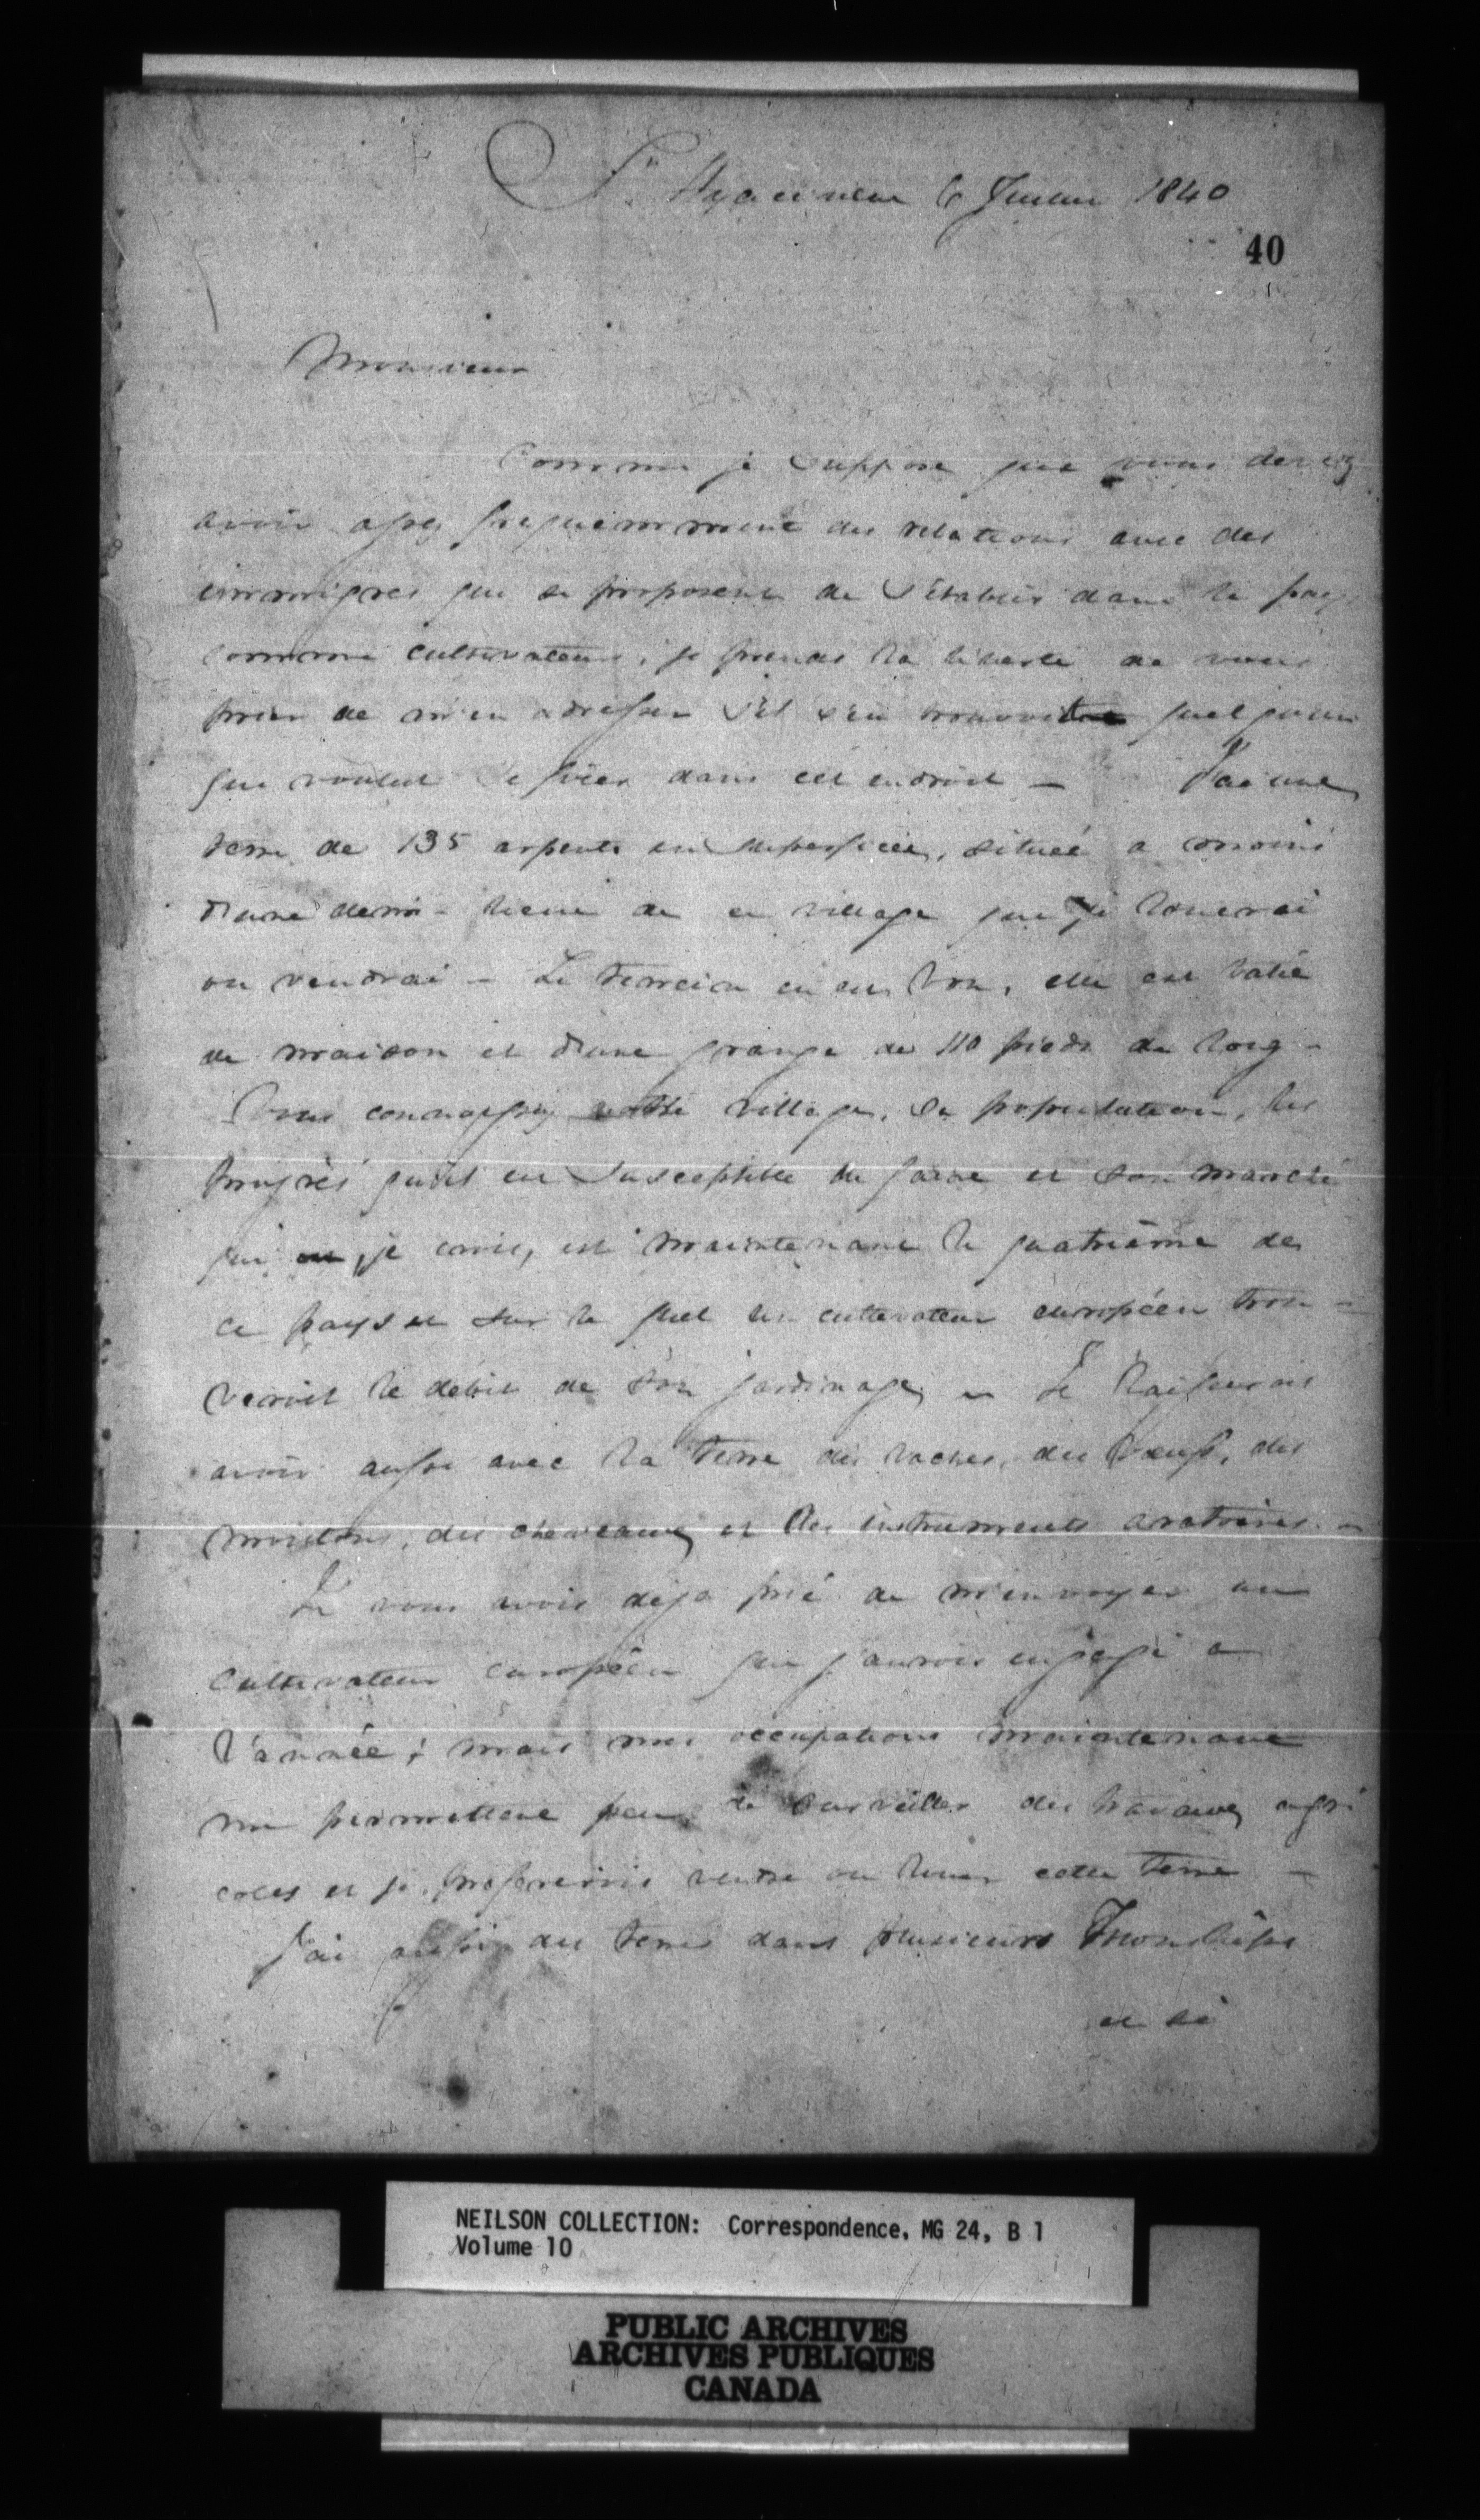 St. Hyacinthe 6 1840
40
Monsieur
Comme je suppose que vous devez
avoir assez frequemment des relations avec des
immigrés qui se proposent de s'établir dans le pays
comme cultivateurs, je prends la liberté de vous
prier de m'en adresser s'il s'en trouvoit quelqu'un
qui voulut se fixer dans cet endroit — J'ai une
terre de 135 arpents en superficie, située a moins
d'une demi-lieue de ce village que je louerai
ou vendrai – Le terrein en est bon, elle est batie
de maison et d'une grange de 110 pieds de long –
Vous connaissez notre village, sa population, les
progrès qu'il est susceptible de faire et son marché
qui, je crois, est maintenant le quatrième de
ce pays et sur le quel un cultivateur européen trou-
veroit le débit de son jardinage – Je laisserois
avoir aussi avec la terre des vaches, des boeufs, des
moutons, des chevaux et les instruments aratoires. –
Je vous avois déja prié de m'envoyer un
cultivateur européen que j'aurois engagé a
l'année; mais mes occupations maintenant
me permettent peu de surveiller des travaux agri
coles et je préfèrerois vendre ou louer cette terre –
J'ai aussi des terres dans plusieurs Townships
et si
NEILSON COLLECTION: Correspondence, MG 24, B 1
Volume 10
PUBLIC ARCHIVES
ARCHIVES PUBLIQUES
CANADA